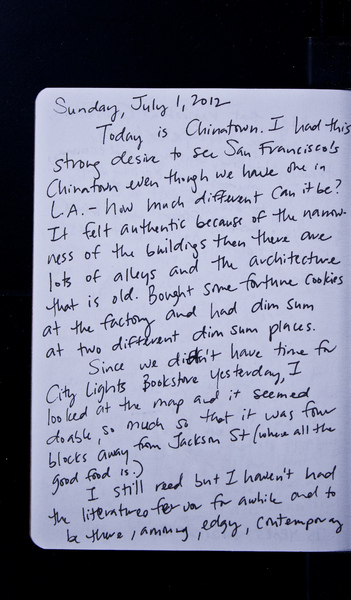 Sunday, July 1, 2012
Today is Chinatown. I had this
strong desire to see San Francisco's
Chinatown even though we have one in
L.A. - how much different can it be?
It felt authentic because of the narrow-
ness of the buildings then there are
lots of alleys and the architecture
that is old. Bought some fortune cookies
at the factory and had dim sum
at two different dim sum places.
Since we didn't have time for
City Lights Bookstore yesterday, I
looked at the map and it seemed
doable, so much so that it was four
blocks away from Jackson St (where all the
good food is.)
I still read but I haven't had
the literature fervor for awhile and to
be there, among, edgy, contemporary